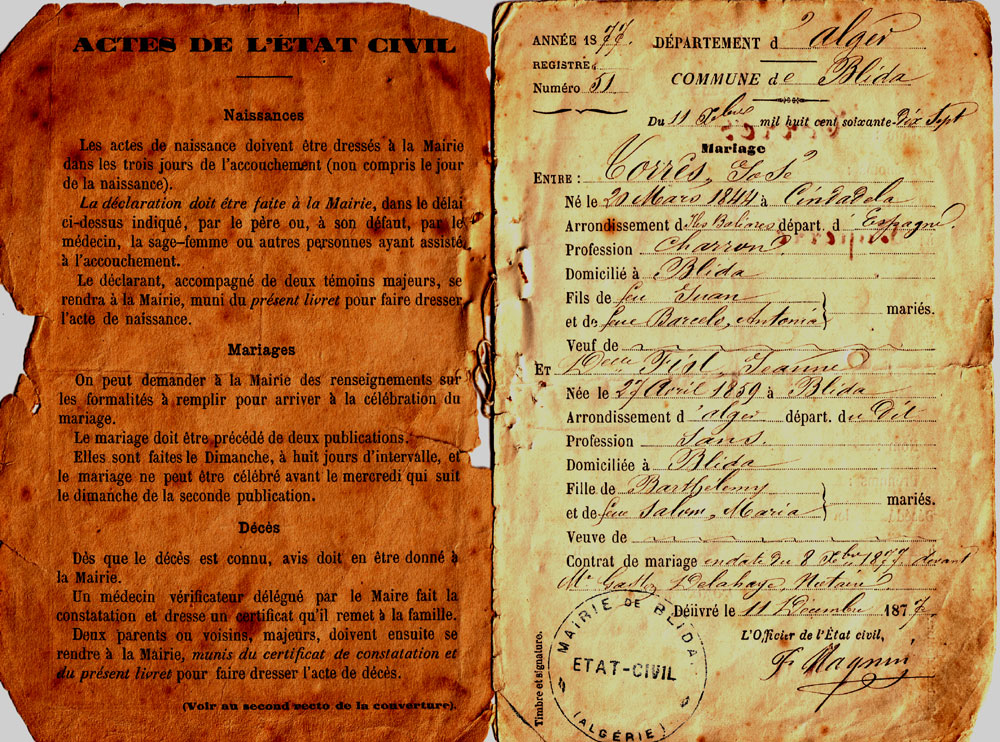 ACTES DE L'ÉTAT CIVIL
Naissances
Les actes de naissance doivent être dressés à la Mairie
dans les trois jours de l'accouchement (non compris le jour
de la naissance).
La déclaration doit être faite à la Mairie, dans le délai
ci-dessus indiqué, par le père ou, à son défaut, par le
médecin, la sage-femme ou autres personnes ayant assisté
à l'accouchement.
Le déclarant, accompagné de deux témoins majeurs, se
rendra à la Mairie, muni du présent livret pour faire dresser
l'acte de naissance.
Mariages
On peut demander à la Mairie des renseignements sur
les formalités à remplir pour arriver à la célébration du
mariage.
Le mariage doit être précédé de deux publications.
Elles sont faites le Dimanche, à huit jours d'intervalle, et
le mariage ne peut être célébré avant le mercredi qui suit
le dimanche de la seconde publication.
Décès
Dès que le décès est connu, avis doit en être donné à
la Mairie.
Un médecin vérificateur délégué par le Maire fait la
constatation et dresse un certificat qu'il remet à la famille.
Deux parents ou voisins, majeurs, doivent ensuite se
rendre à la Mairie, munis du certificat de constatation et
du présent livret pour faire dresser l'acte de décès.
(Voir au second recto de la couverture).
ANNÉE 1877. DÉPARTEMENT d'Alger
REGISTRE
Numéro 51 COMMUNE de Blida
Du 11 Xbre mil huit cent soixante-Dix Sept
Mariage
ENTRE : Torrès, José
Né le 20 Mars 1844 à Cindadela
Arrondissement d Iles Baléares départ. d'Espagne.
Profession Charron
Domicilié à Blida
Fils de feu Juan
et de feue Barcelo, Antonia mariés.
Veuf de
ET Delle Fiol, Jeanne
Née le 27 Avril 1859 à Blida
Arrondissement d'Alger départ. du dit
Profession Sans.
Domiciliée à Blida
Fille de Barthelemy
et de feue Salom, Maria mariés.
Veuve de
Contrat de mariage en date du 8 Xbre 1877 devant
Me Delahaye, Notaire
Délivré le 11 Décembre 1877
L'Officier de l'État civil,
F. Magnin
Timbre et signature.
MAIRIE DE BLIDA
ETAT-CIVIL
(ALGÉRIE)